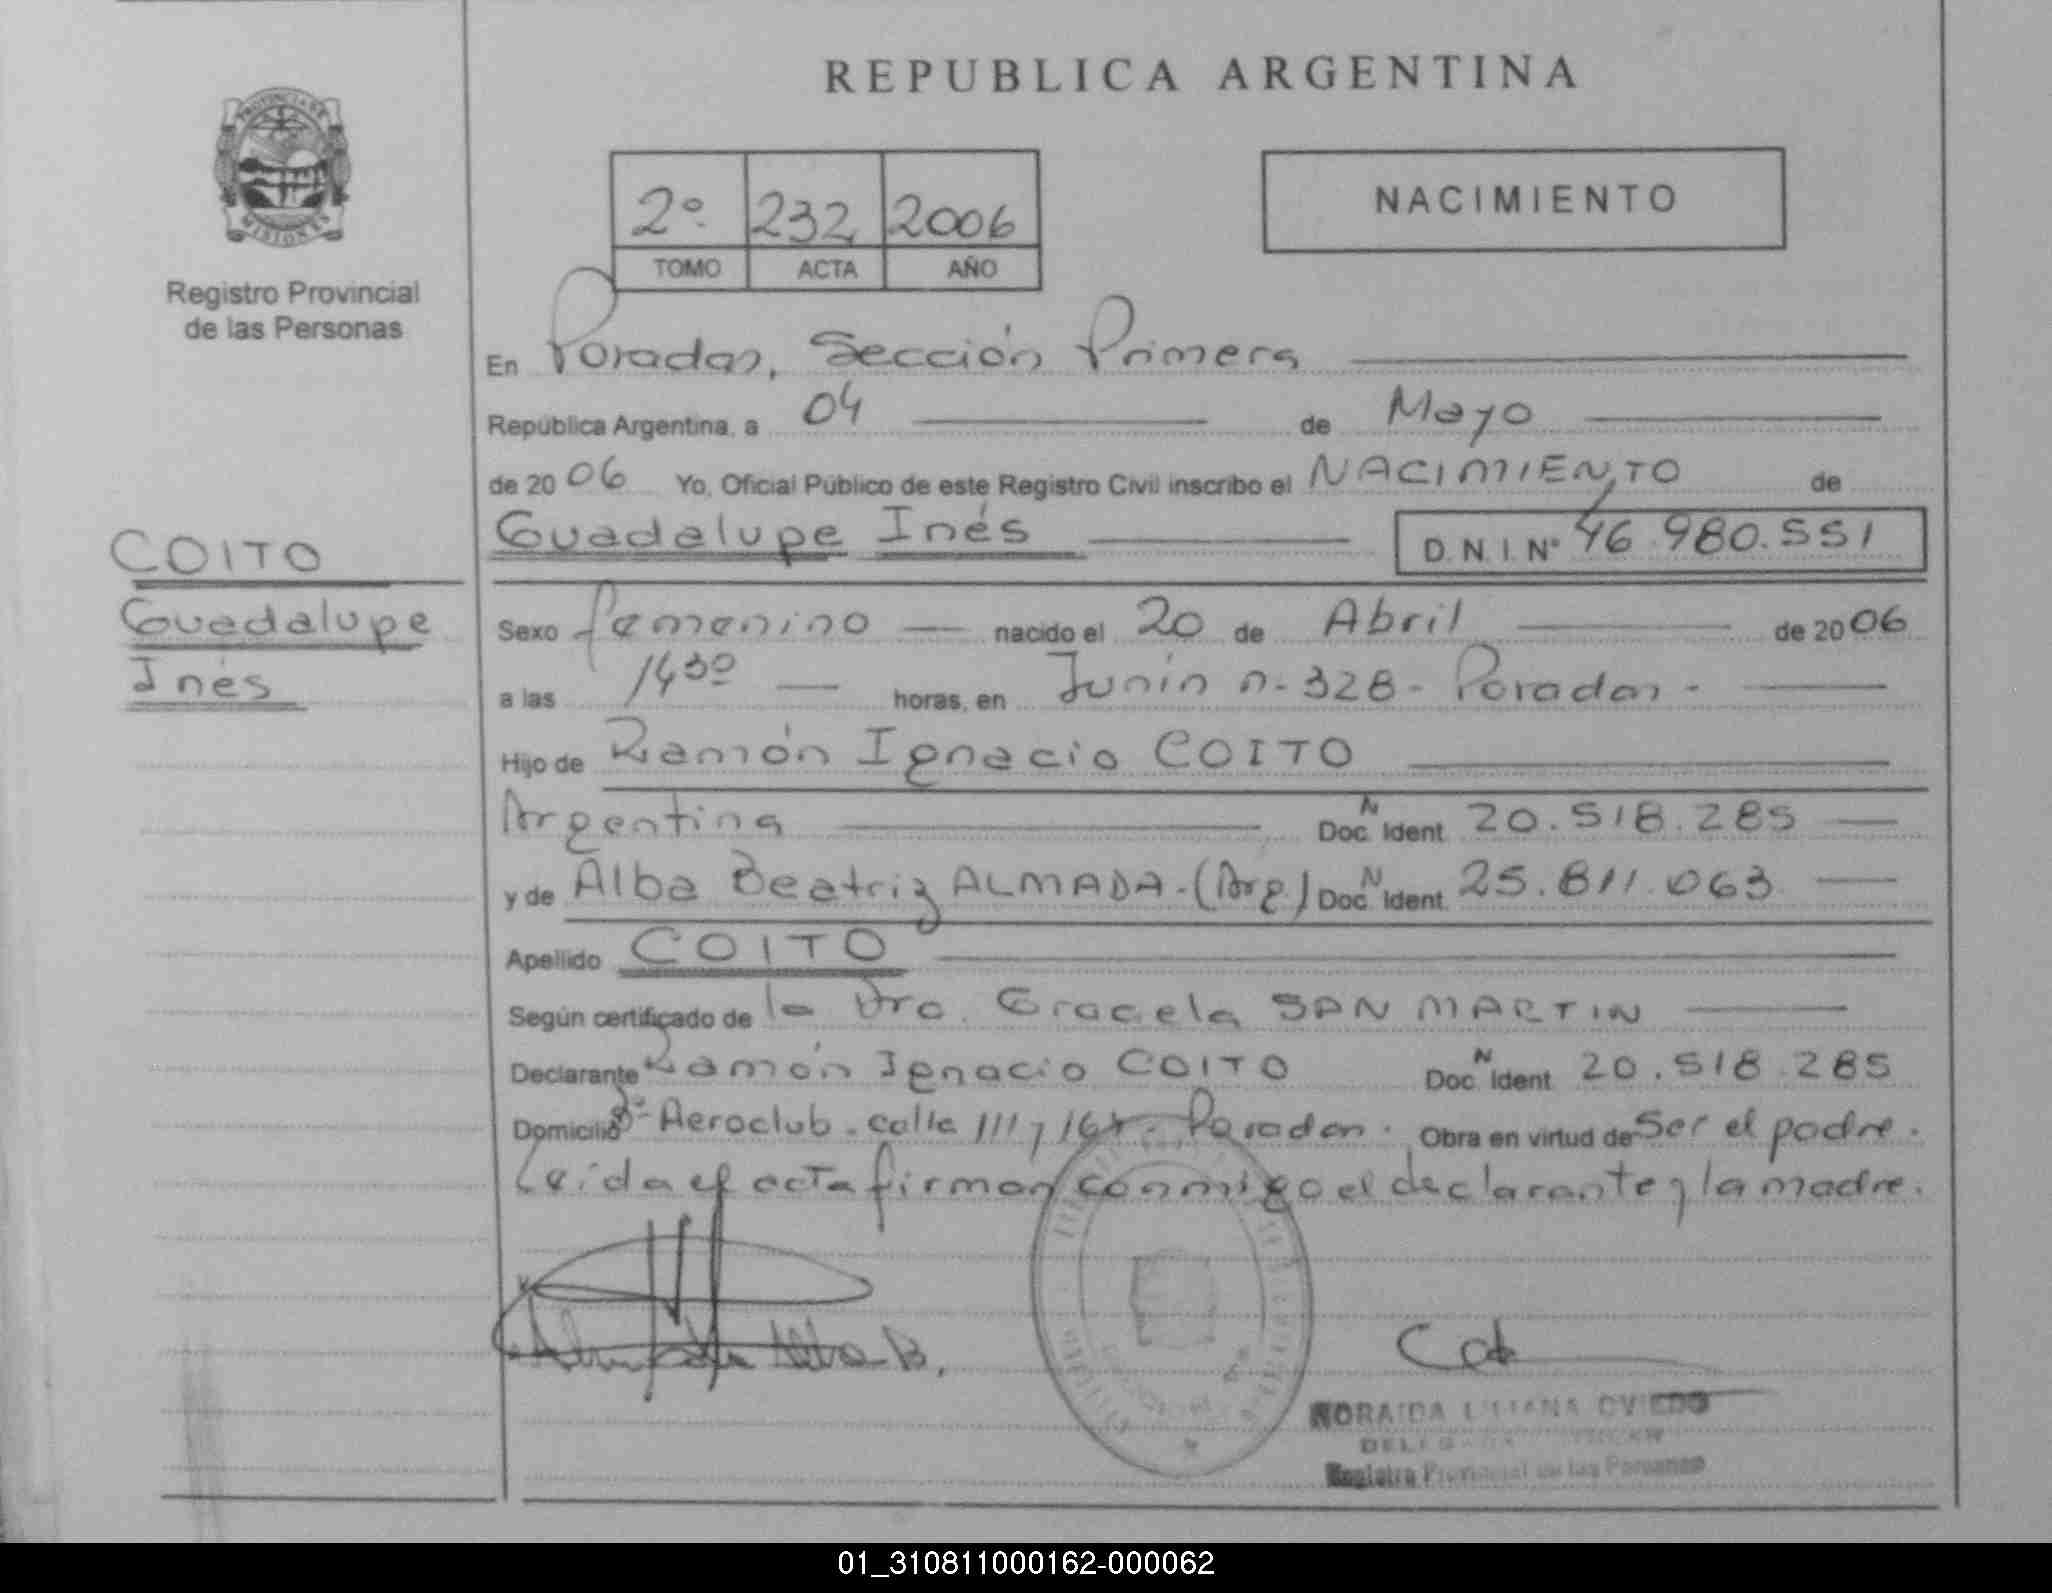 REPUBLICA ARGENTINA
PROVINCIA DE
MISIONES
Registro Provincial
de las Personas
2º 232 2006
TOMO ACTA AÑO
NACIMIENTO
En Posadas, Sección Primera
República Argentina, a 04 de Mayo
de 2006 Yo, Oficial Público de este Registro Civil inscribo el NACIMIENTO de
Guadalupe Inés D.N.I. Nº 46.980.551
COITO
Guadalupe
Inés
Sexo femenino nacido el 20 de Abril de 2006
a las 14³⁰ horas, en Junín n-328- Posadas -
Hijo de Ramón Ignacio COITO
Argentina Doc. N Ident. 20.518.285
y de Alba Beatriz ALMADA-(Arg) Doc. N Ident. 25.811.063
Apellido COITO
Según certificado de la Dra. Graciela SAN MARTIN
Declarante Ramón Ignacio COITO Doc. N Ident. 20.518.285
Domicilio Bº Aeroclub - calle 111 y Posadas. Obra en virtud de Ser el padre.
Leída el acta firman conmigo el declarante y la madre.
Alba B.
NORAIDA LILIANA OVIEDO
Registro Provincial de las Personas
01_310811000162-000062